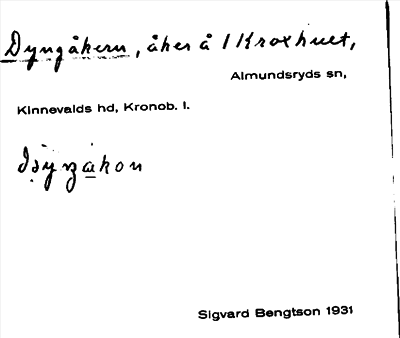 Dyngåkern, åker å 1 Kroxhult,
Almundsryds sn,
Kinnevalds hd, Kronob. l.
Sigvard Bengtson 1931